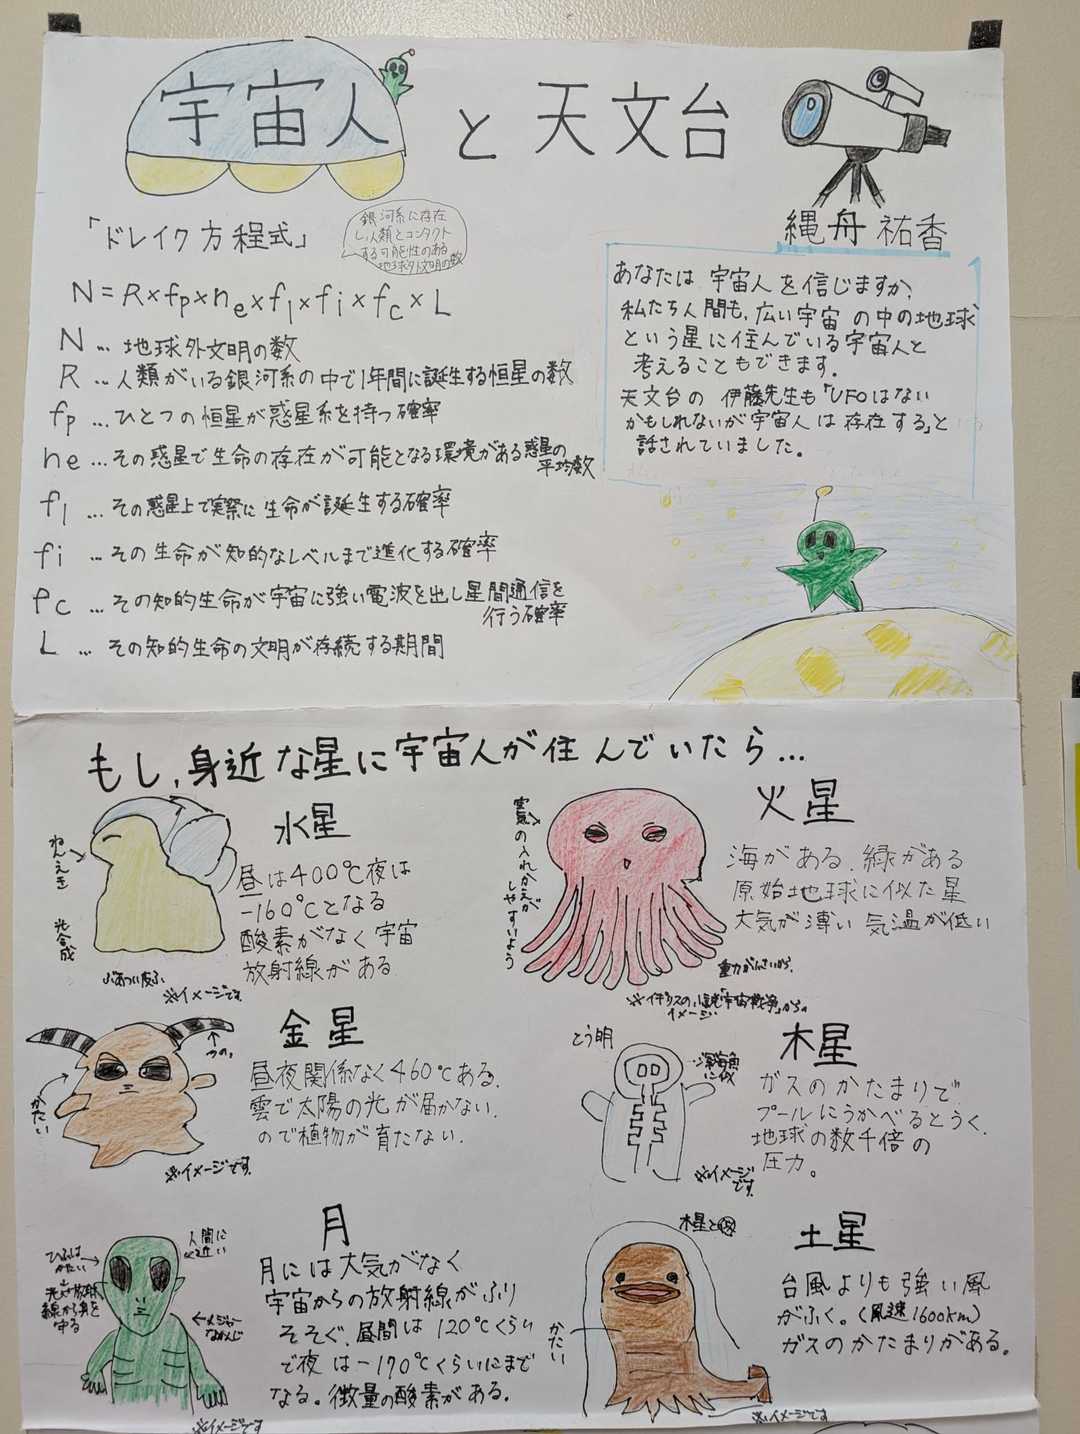 宇宙人と天文台
縄舟 祐香
「ドレイク方程式」
銀河系に存在
し人類とコンタクト
する可能性のある
地球外文明の数
N=R×fp×ne×fl×fi×fc×L
N… 地球外文明の数
R…人類がいる銀河系の中で1年間に誕生する恒星の数
fp…ひとつの恒星が惑星系を持つ確率
ne…その惑星で生命の存在が可能となる環境がある惑星の
平均数
fl…その惑星上で実際に生命が誕生する確率
fi…その生命が知的なレベルまで進化する確率
fc…その知的生命が宇宙に強い電波を出し星間通信を
行う確率
L…その知的生命の文明が存続する期間
あなたは宇宙人を信じますか?
私たち人間も、広い宇宙の中の地球
という星に住んでいる宇宙人と
考えることもできます。
天文台の伊藤先生も「UFOはない
かもしれないが宇宙人は存在する」と
話されていました。
もし、身近な星に宇宙人が住んでいたら…
水星
昼は400℃夜は
-160℃となる
酸素がなく宇宙
放射線がある
ねんえき
光合成
ぶあつい皮ふ
※イメージです。
火星
海がある、緑がある
原始地球に似た星
大気が薄い 気温が低い
の入れかえが
しやすいよう
重力が
イメージ
金星
昼夜関係なく460℃ある。
雲で太陽の光が届かない。
ので植物が育たない。
つの。
かたい
※イメージです。
木星
ガスのかたまりで
プールにうかべるとうく。
地球の数千倍の
圧力。
とう明
深海魚
に似
※イメージ
です。
月
月には大気がなく
宇宙からの放射線がふり
そそぐ、昼間は120℃くらい
で夜は-170℃くらいにまで
なる。微量の酸素がある。
人間に
近い
ひふは
かたい
線から身を
守る
※イメージです
土星
台風よりも強い風
がふく。(風速1600km)
ガスのかたまりがある。
木星と同
かたい
※イメージです